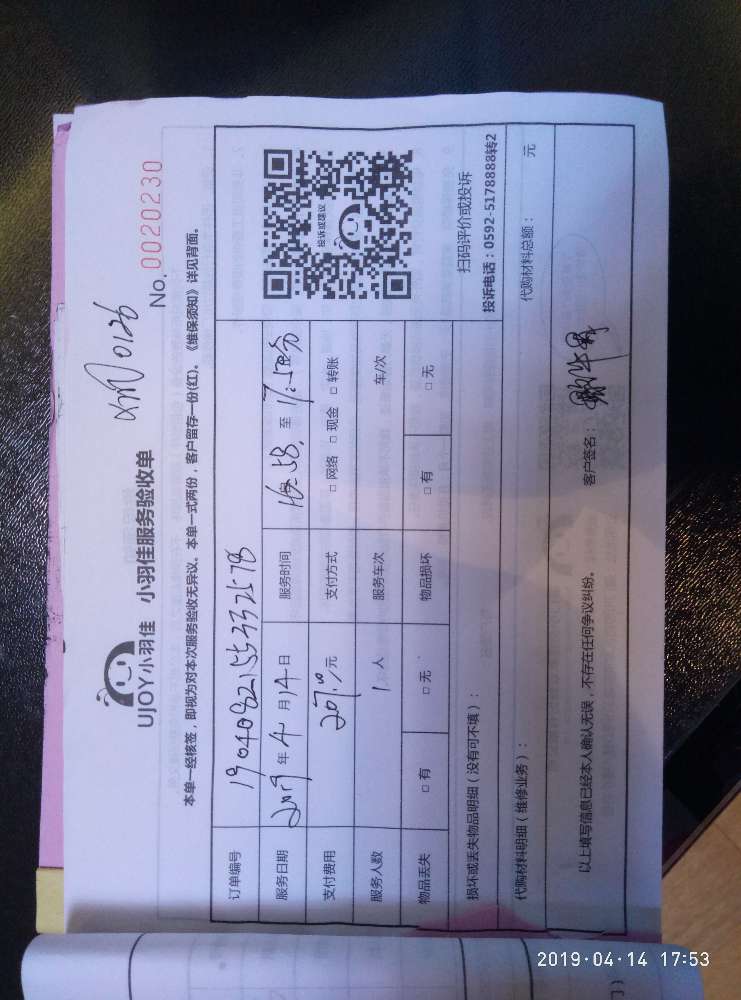 UJOY小羽佳 小羽佳服务验收单
0126
No. 0020230
本单一经核签，即视为对本次服务验收无异议。本单一式两份，客户留存一份(红)。《维保须知》详见背面。
订单编号
服务日期 2019年4月14日 服务时间 至
支付费用 207.00元 支付方式 □网络 □现金 □转账
服务人数 1人 服务车次 车/次
物品丢失 □有 □无 物品损坏 □有 □无
投诉或建议
扫码评价或投诉
投诉电话：0592-5178888转2
损坏或丢失物品明细（没有可不填）：
代购材料明细（维修业务）： 代购材料总额： 元
以上填写信息已经本人确认无误，不存在任何争议纠纷。 客户签名：
2019·04·14 17:53